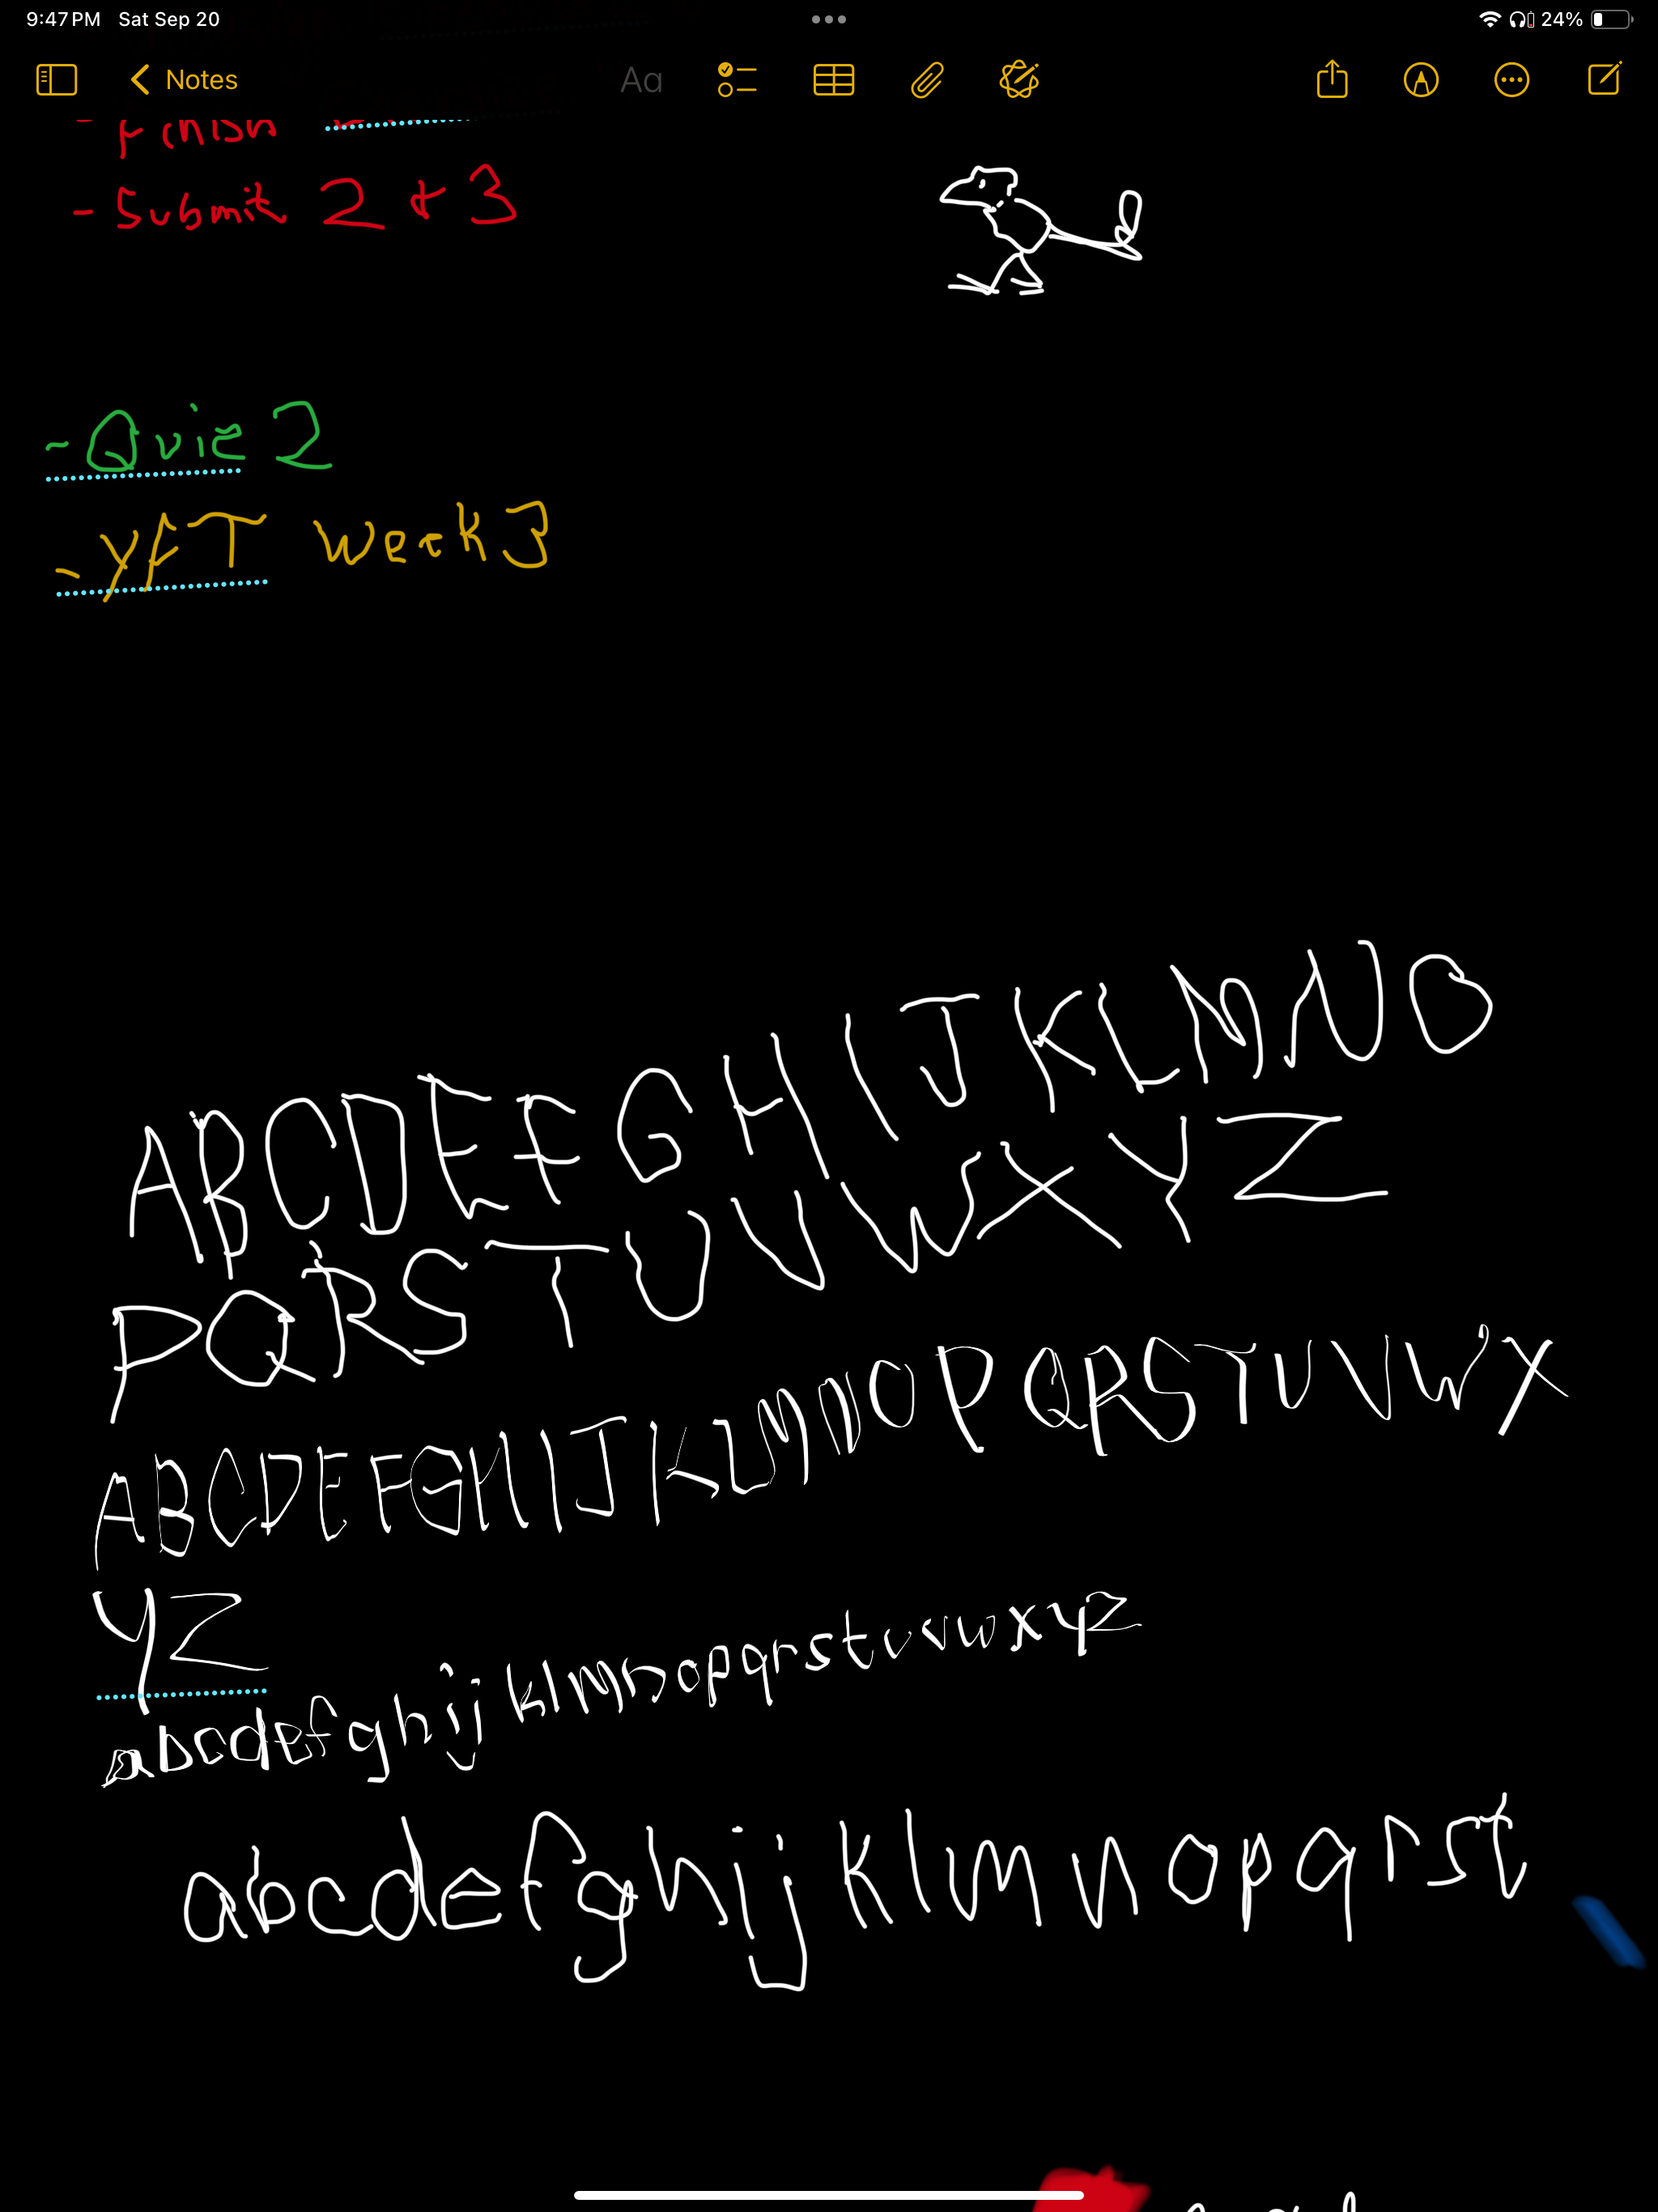 9:47 PM Sat Sep 20 24%
Notes Aa
- finish
- Submit 2 + 3
- Quiz 2
- YFT week 3
ABCDEFGHIJKLMNO
PQRSTUVWXYZ
ABCDEFGHIJKLMNOPQRSTUVWX
YZ
abcdefghijklmnopqrstuvwxyz
abcdefghijklmnopqrst